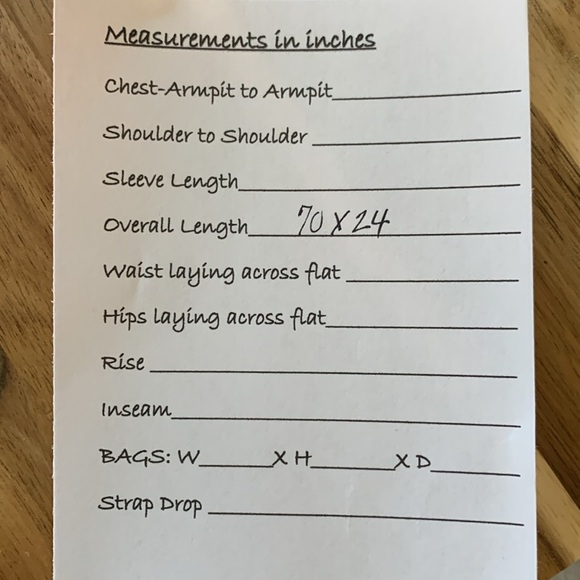 Measurements in inches
Chest-Armpit to Armpit
Shoulder to Shoulder
Sleeve Length
Overall Length 70 X 24
Waist laying across flat
Hips laying across flat
Rise
Inseam
BAGS: W X H X D
Strap Drop